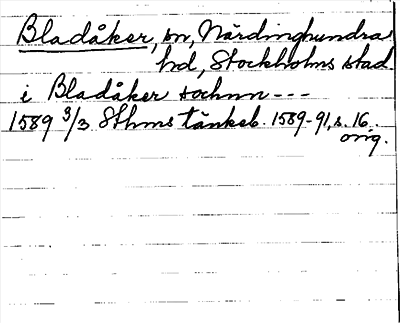 Bladåker, sn, Närdinghundra
hd, Stockholms stad.
i Bladåker sochnn ---
1589 3/3 Sthms tänkeb. 1589-91, s. 16.
orig.